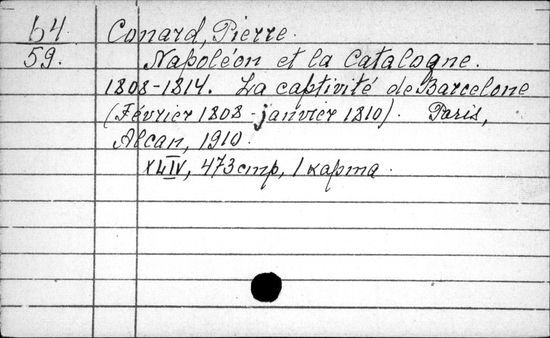 64 Conard, Pierre.
59. Napoléon et la Catalogne.
1808-1814. La captivité de Barcelone
(Février 1808 - janvier 1810). Paris,
Alcan, 1910.
XLIV, 473 стр, 1 карта.